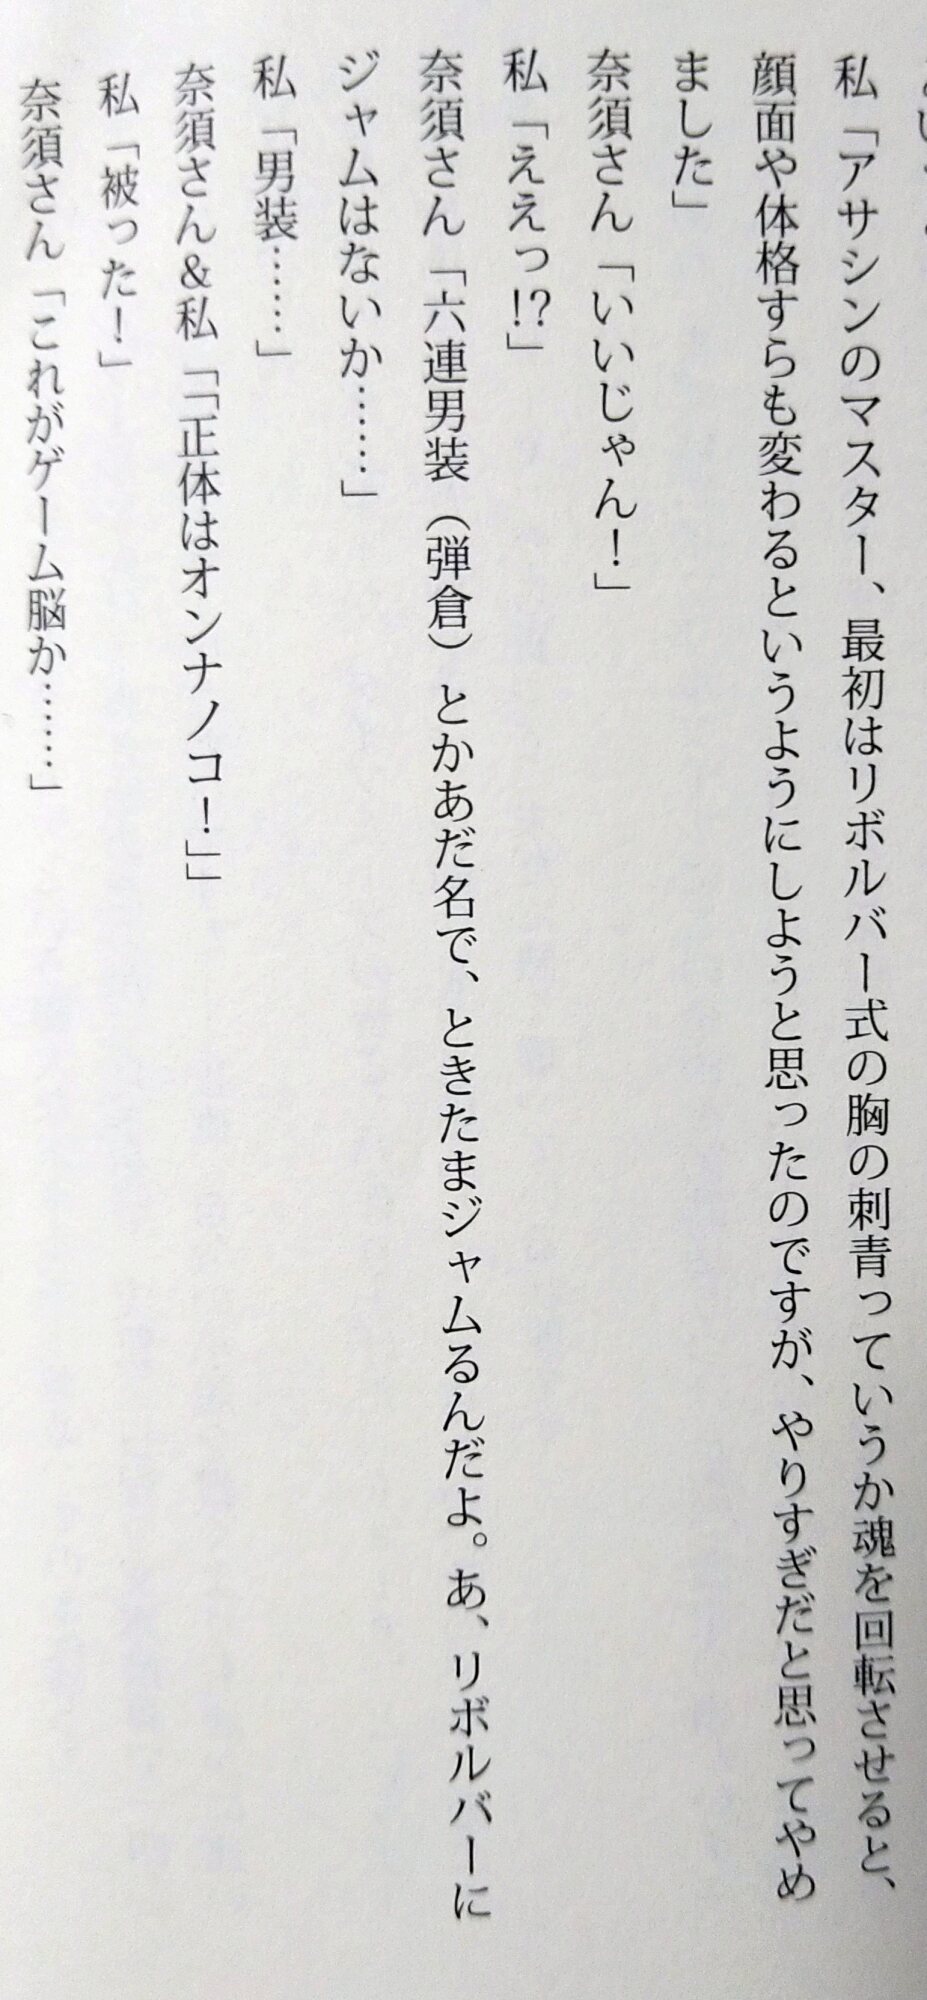 私「アサシンのマスター、最初はリボルバー式の胸の刺青っていうか魂を回転させると、
顔面や体格すらも変わるというようにしようと思ったのですが、やりすぎだと思ってやめ
ました」
奈須さん「いいじゃん！」
私「ええっ!?」
奈須さん「六連男装（弾倉）とかあだ名で、ときたまジャムるんだよ。あ、リボルバーに
ジャムはないか……」
私「男装……」
奈須さん＆私「「正体はオンナノコ！」」
私「被った！」
奈須さん「これがゲーム脳か……」